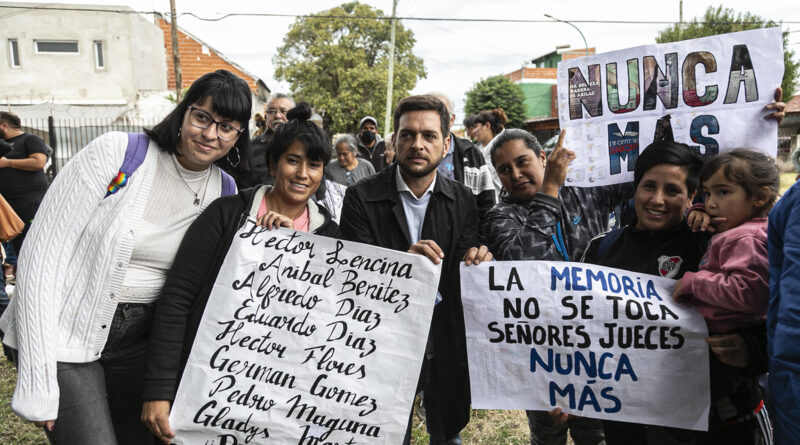 Hector Lencina
Anibal Benitez
Alfredo Diaz
Eduardo Diaz
Hector Flores
German Gomez
Pedro Maguna
Gladys
NUNCA
MÁS
LA MEMORIA
NO SE TOCA
SEÑORES JUECES
NUNCA
MÁS